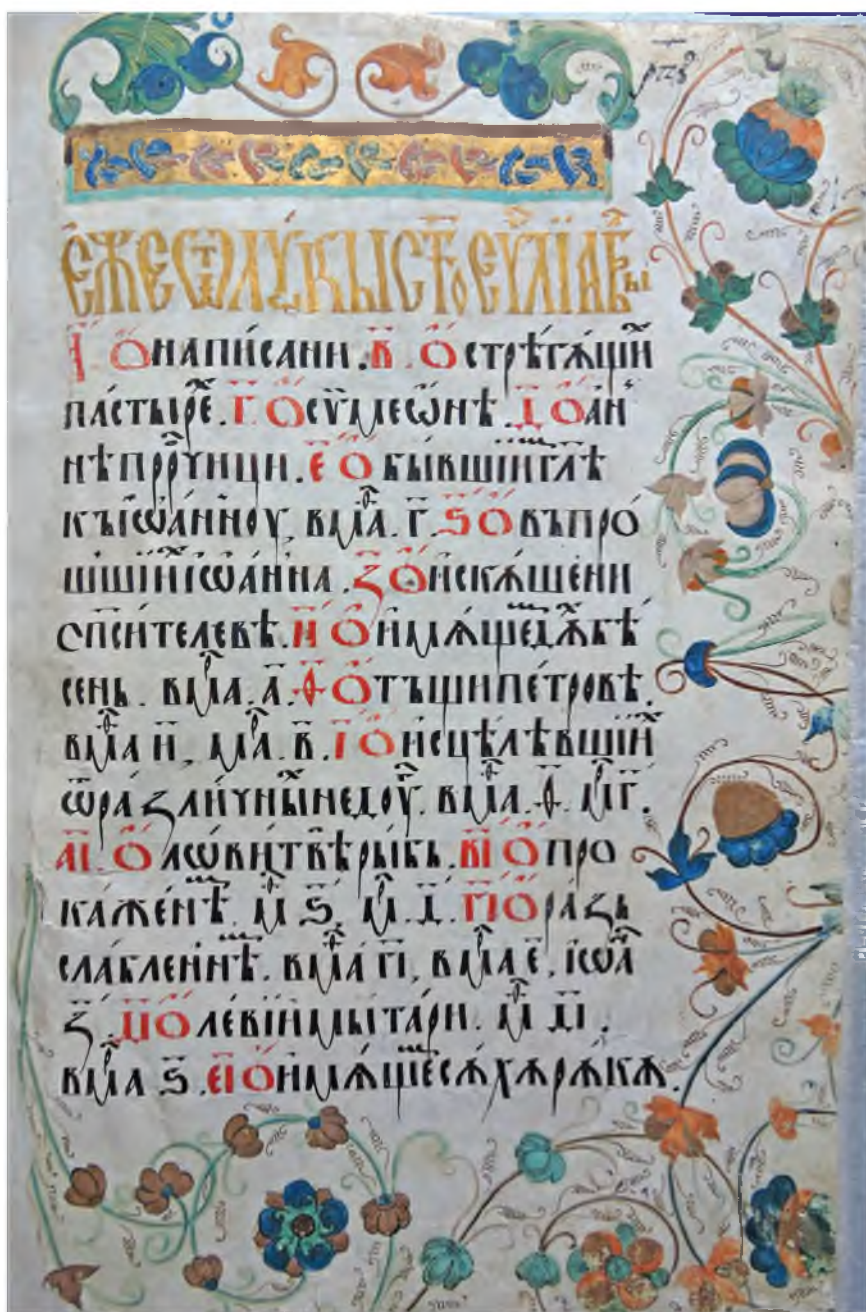 рпз҃
Є́ЖЕ Ѿ ЛꙊКЫ СТ҃О ЕѴⷢ҇ЛІА ГЛⷡ҇Ы
а҃ О написани. в҃ О стрѣгѫщиⷯ
пастырⷯе. г҃ О сѷмеѡнѣ. д҃ О ан
нѣ прⷪ҇рчици. є҃ О бывшіиⷨ гл҃ѣ
къ іѡанноу, в маⷴ. г҃. ѕ҃ О въпро
шшіиⷯ іѡанна. з҃ О искꙋшени
сп҃сителевѣ. и҃ О имѫщеⷨ дꙋⷯ бѣ
сень. в маⷬ. а҃. ѳ҃ О тъщи петровѣ.
в маⷴ и҃, маⷬ. в҃. і҃ О исцѣлѣвшіиⷯ
ѿ различныⷯ недоуⷢ. в маⷴ. ѳ҃. мⷬ г҃.
аі҃ О ловитвѣ рыбь. ві҃ О про
каженѣⷨ. мⷴ ѕ҃. мⷬ. д҃. гі҃ О разь
слабленнѣⷨ. в маⷴ гі҃, в маⷬ є҃, іѡаⷩ
з҃. ді҃ О левіи мытари. мⷴ ді҃.
в маⷬ ѕ҃. єі҃ О имѫщеⷨ сѫхѫ рѫкѫ.